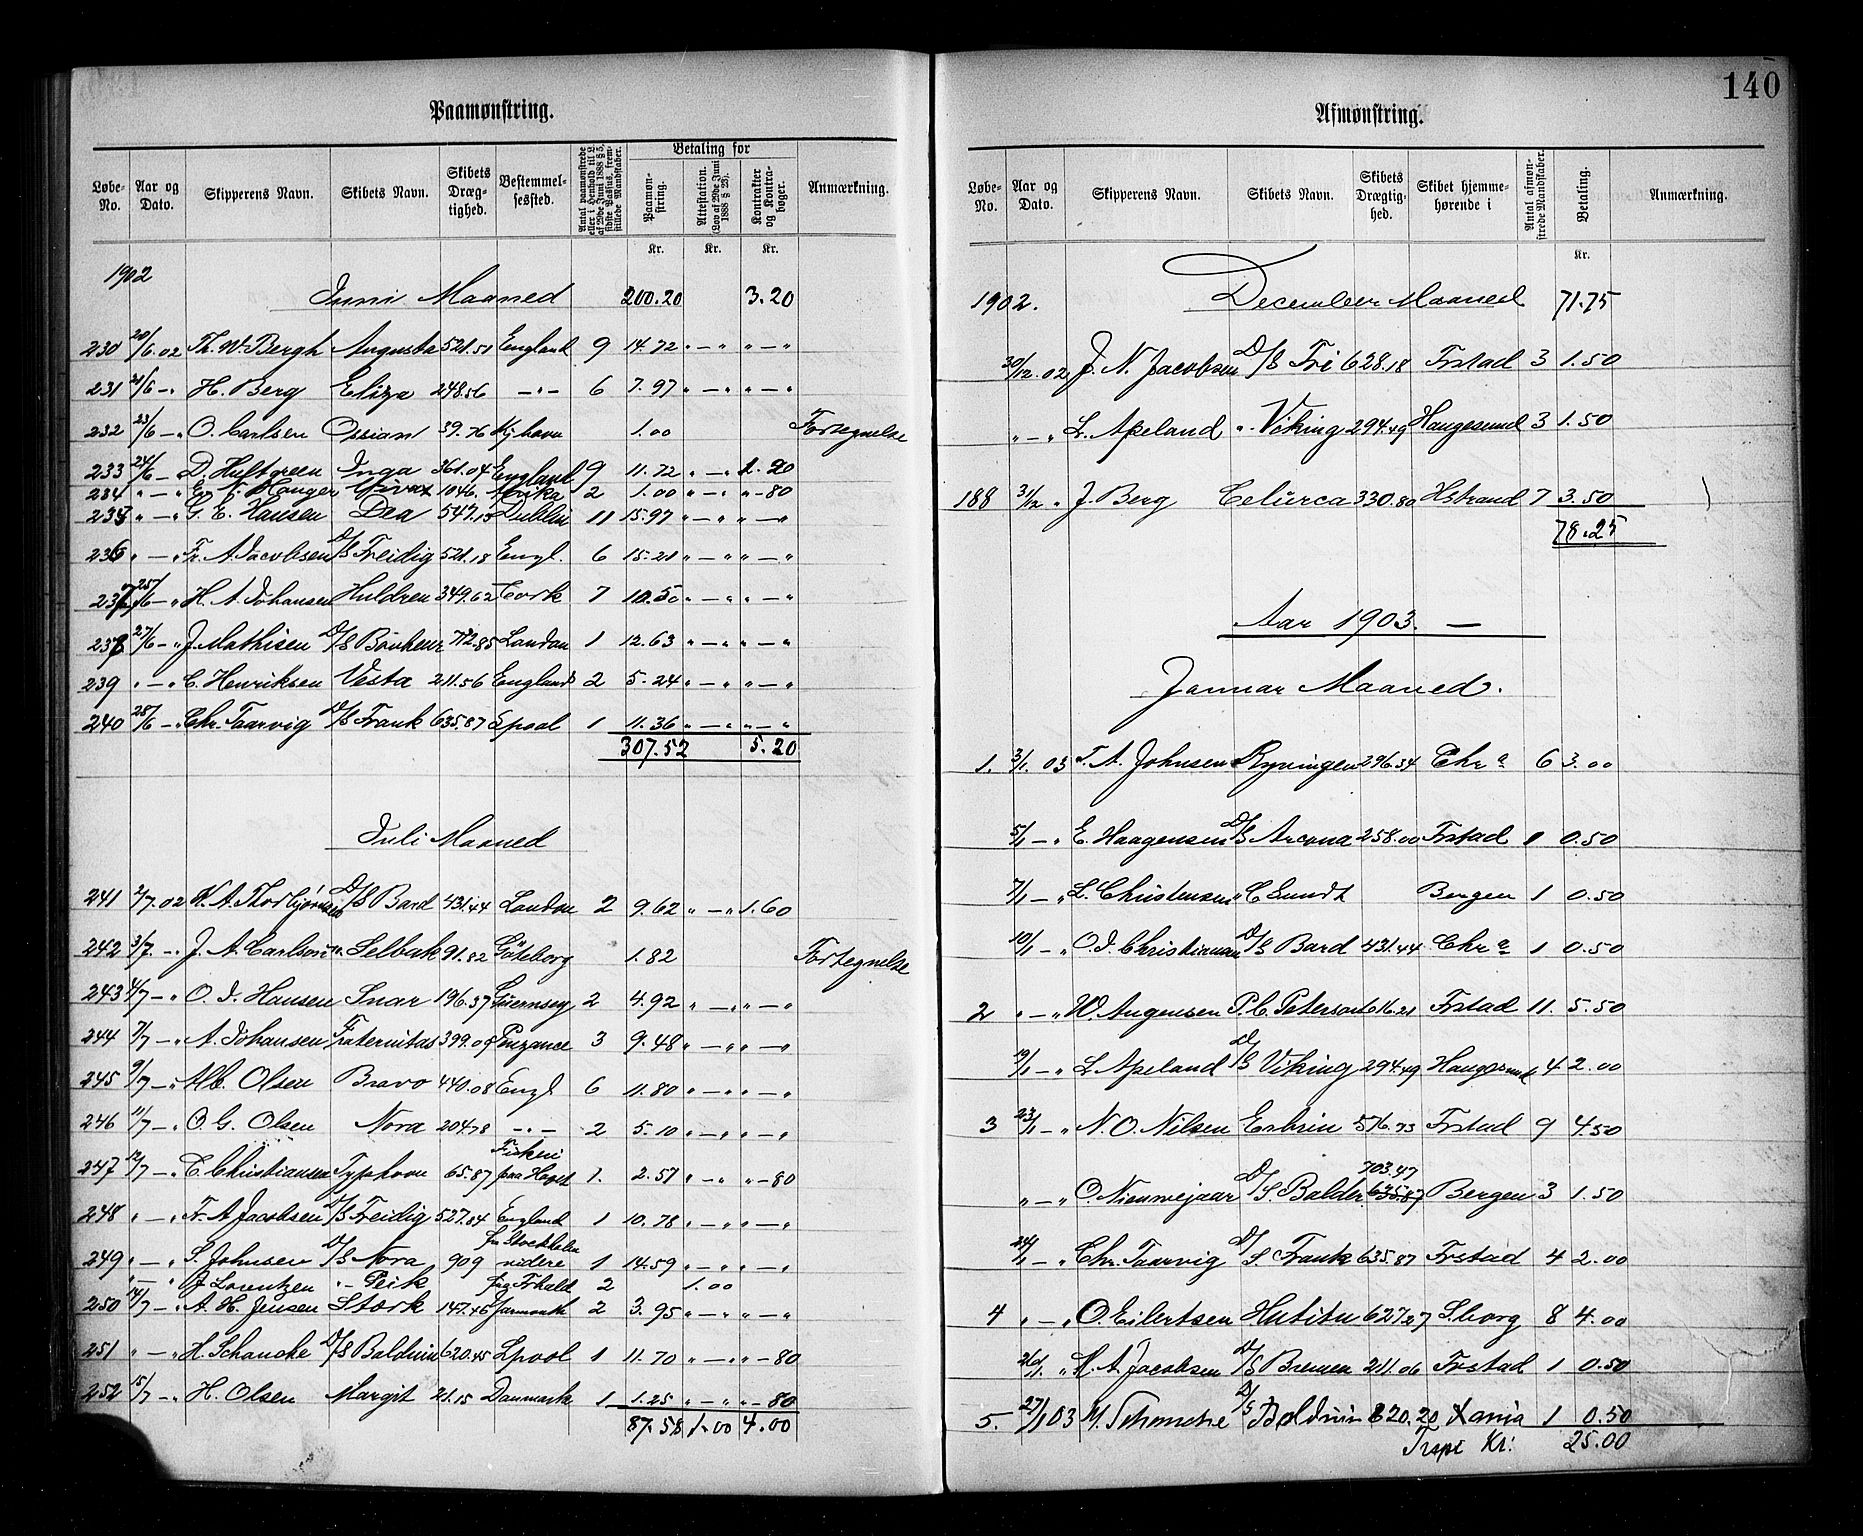 140
Paamønstring.
Løbe-No. Aar og Dato. Skipperens Navn. Skibets Navn. Skibets Dræg-tighed. Bestemmel-sessted. Antal paamønstrede eller i Henhold til L. af 29de Juni 1888 § 5, sidste Passus, frem-stillede Mandskaber. Betaling for Paamøn-string. Attestation. (Lov af 29de Juni 1888 § 23). Kontrakter og Kontra-bøger. Anmærkning.
Kr. Kr. Kr.
1902
Juni Maaned 200.20 3.20
230 20/6.02 Th. W. Bergh Augusta 521.51 England 9 14.72 " — " " — "
231 21/6 — " H. Berg Eliza 248.56 — " — 6 7.97 " — " " — "
232 23/6 — " O. Carlsen Ossian 39.76 Kjhavn 1.00 Fortegnelse
233 24/6 — " D. Hultgreen Inga 361.04 England 9 11.72 " — " 1.20
234 " — " 1046. Afrika 2 1.00 " — " " -80
235 " — " G. E. Hansen Dea 547.15 Dublin 11 15.97 " — " " — "
236 " — " Fr. A. Jacobsen D/S Freidig 521.18 Engl. 6 15.21 " — " " — "
237 25/6 — " H. A. Johansen Huldren 349.62 Cork 7 10.50 " — " " — "
238 27/6 — " J. Mathisen D/S Bonheur 712.85 London 1 12.63 " — " " — "
239 " — " C. Henriksen Vesta 211.56 England 2 5.24 " — " " — "
240 28/6 — " Chr. Taarvig D/S Frank 635.87 Lpool 1 11.36 " — " " — "
307.52 5.20
Juli Maaned
241 2/7.02 K. A. Thorbjørnsen D/S Bard 431.44 London 2 9.62 " — " 1.60
242 3/7. — " J. A. Carlson Selbak 91.82 Göteborg 1.82 Fortegnelse
243 4/7 — " O. J. Hansen Snar 196.37 Guernsey 2 4.92 " — " " — "
244 7/7 — " A. Johansen Fraternitas 399.09 Penzance 3 9.48 " — " " — "
245 9/7 — " Alb. Olsen Bravo 440.08 Engl 6 11.80 " — " " — "
246 11/7 — " O. G. Olsen Nora 204.78 — " — 2 5.10 " — " " — "
247 12/7 — " C. Christiansen Typhoon 65.87 Fiskeri paa Havet 1. 2.51 " — " " -80
248 " — " Fr. A. Jacobsen D/S Freidig 527.84 England 1 10.78 " — " " — "
249 " — " S. Johnsen D/S Nora 909 fra Stockholm videre 1 14.59 " — " " — "
" — " J. Lorentzen " - Peik fra Frhald 2 1.00
250 14/7 — " A. H. Jensen Stork 147.45 Jarmouth 2 3.95 " — " " — "
251 " — " H. Schanche D/S Balduin 620.45 Lpool 1 11.70 " — " " -80
252 15/7 — " H. Olsen Margit 21.15 Danmark 1 1.25 " — " " -80
87.58 1.00 4.00
Afmønstring.
Løbe-No. Aar og Dato. Skipperens Navn. Skibets Navn. Skibets Drægtig-hed. Skibet hjemme-hørende i Antal afmøn-strede Mandskaber. Betaling. Anmærkning.
Kr.
1902. December Maaned 71.75
30/12.02 J. N. Jacobsen D/S Fri 628.18 Frstad 3 1.50
" — " L. Apeland " - Viking 294.49 Haugesund 3 1.50
188 31/12 " J. Berg Celurca 330.80 Hstrand 7 3.50
78.25
Aar 1903. —
Januar Maaned.
1. 3/1. 03 T. A. Johnsen Ryvingen 296.34 Chr a 6 3.00
5/1 — " E. Haagensen D/S Arcona 258.00 Frstad 1 0.50
7/1 — " L. Christensen " C Sundt Bergen 1 0.50
10/1 — " O. J. Christiansen D/S Bard 431.44 Chr a 1 0.50
2 " — " W. Augensen P. C. Peterson 616.21 Frstad 11. 5.50
19/1 — " L Apeland D/S Viking 294.49 Haugesund 4 2.00
3 23/1 — " N. O. Nilsen Esbrin 516.73 Frstad 9 4.50
" — " O. Nieuwejaar D/S. Balder 703.47 635.87 Bergen 3 1.50
24/1 — " Chr. Taarvig D/S Frank 635.87 Frstad 4 2.00
4 " — " O. Eilertsen Hutitu 627.27 S.borg 8 4.00
26/1 " N. A. Jacobsen D/S Bremen 211.06 Frstad 1 0.50
5. 27/1 03 H. Schanche D/S Balduin 620.20 Xania 1 0.50
Kr: 25.00